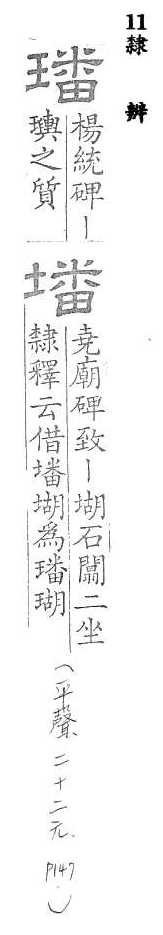 11隸辨
璠
楊統碑｜
璵之質
墦
堯廟碑致｜瑚石闕二坐
隸釋云借墦瑚為璠瑚
(平聲、二十二元. P147.)